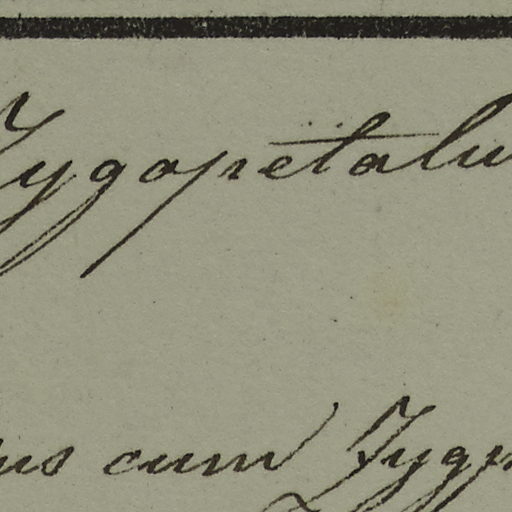 Zygopetalu
us cum Zygp